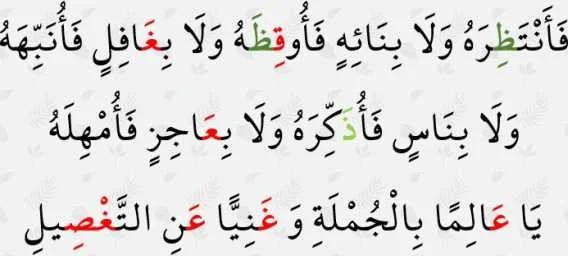 فَأَنْتَظِرَهُ وَلَا بِنَائِهٍ فَأُوقِظَهُ وَلَا بِغَافِلٍ فَأُنَبِّهَهُ
وَلَا بِنَاسٍ فَأُذَكِّرَهُ وَلَا بِعَاجِزٍ فَأُمْهِلَهُ
يَا عَالِمًا بِالْجُمْلَةِ وَ غَنِيًّا عَنِ التَّغْصِيلِ